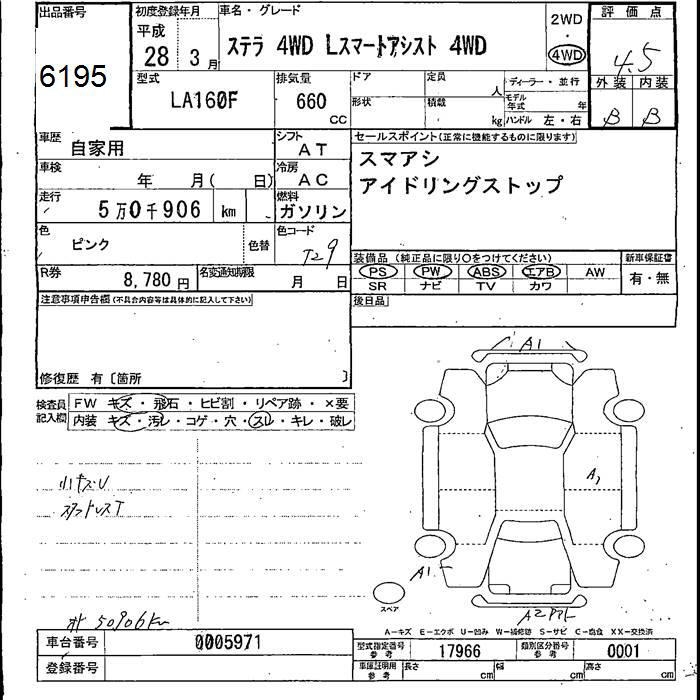 出品番号
6195
初度登録年月
平成
28 3月
車名・グレード
ステラ 4WD Lスマートアシスト 4WD
2WD
・
4WD
評価点
4.5
外装 内装
B B
型式
LA160F
排気量
660
CC
ドア
形状
定員
人
積載
kg
ディーラー・並行
モデル
年式
年
ハンドル 左・右
車歴
自家用
シフト
AT
車検
年 月( 日)
冷房
AC
走行
5万0千906 km
燃料
ガソリン
色
ピンク
色替
色コード
T29
R券
8,780円
名変通知期限
月 日
セールスポイント(正常に機能するものに限ります)
スマアシ
アイドリングストップ
装備品(純正品に限り○をつけてください)
PS PW ABS エアB AW
SR ナビ TV カワ
新車保証書
有・無
後日品
注意事項申告欄(不具合内容等は具体的に記入して下さい)
修復歴 有〔箇所 〕
検査員
記入欄
FW キズ・飛石・ヒビ割・リペア跡・×要
内装 キズ・汚レ・コゲ・穴・スレ・キレ・破レ
小キズU
スタットレスT
50906km
A1
A1
A2
スペア
A-キズ E-エクボ U-凹み W-補修跡 S-サビ C-腐食 XX-交換済
車台番号
0005971
登録番号
型式指定番号
参考
17966
類別区分番号
参考
0001
車庫証明用
参考
長さ
cm
幅
cm
高さ
cm